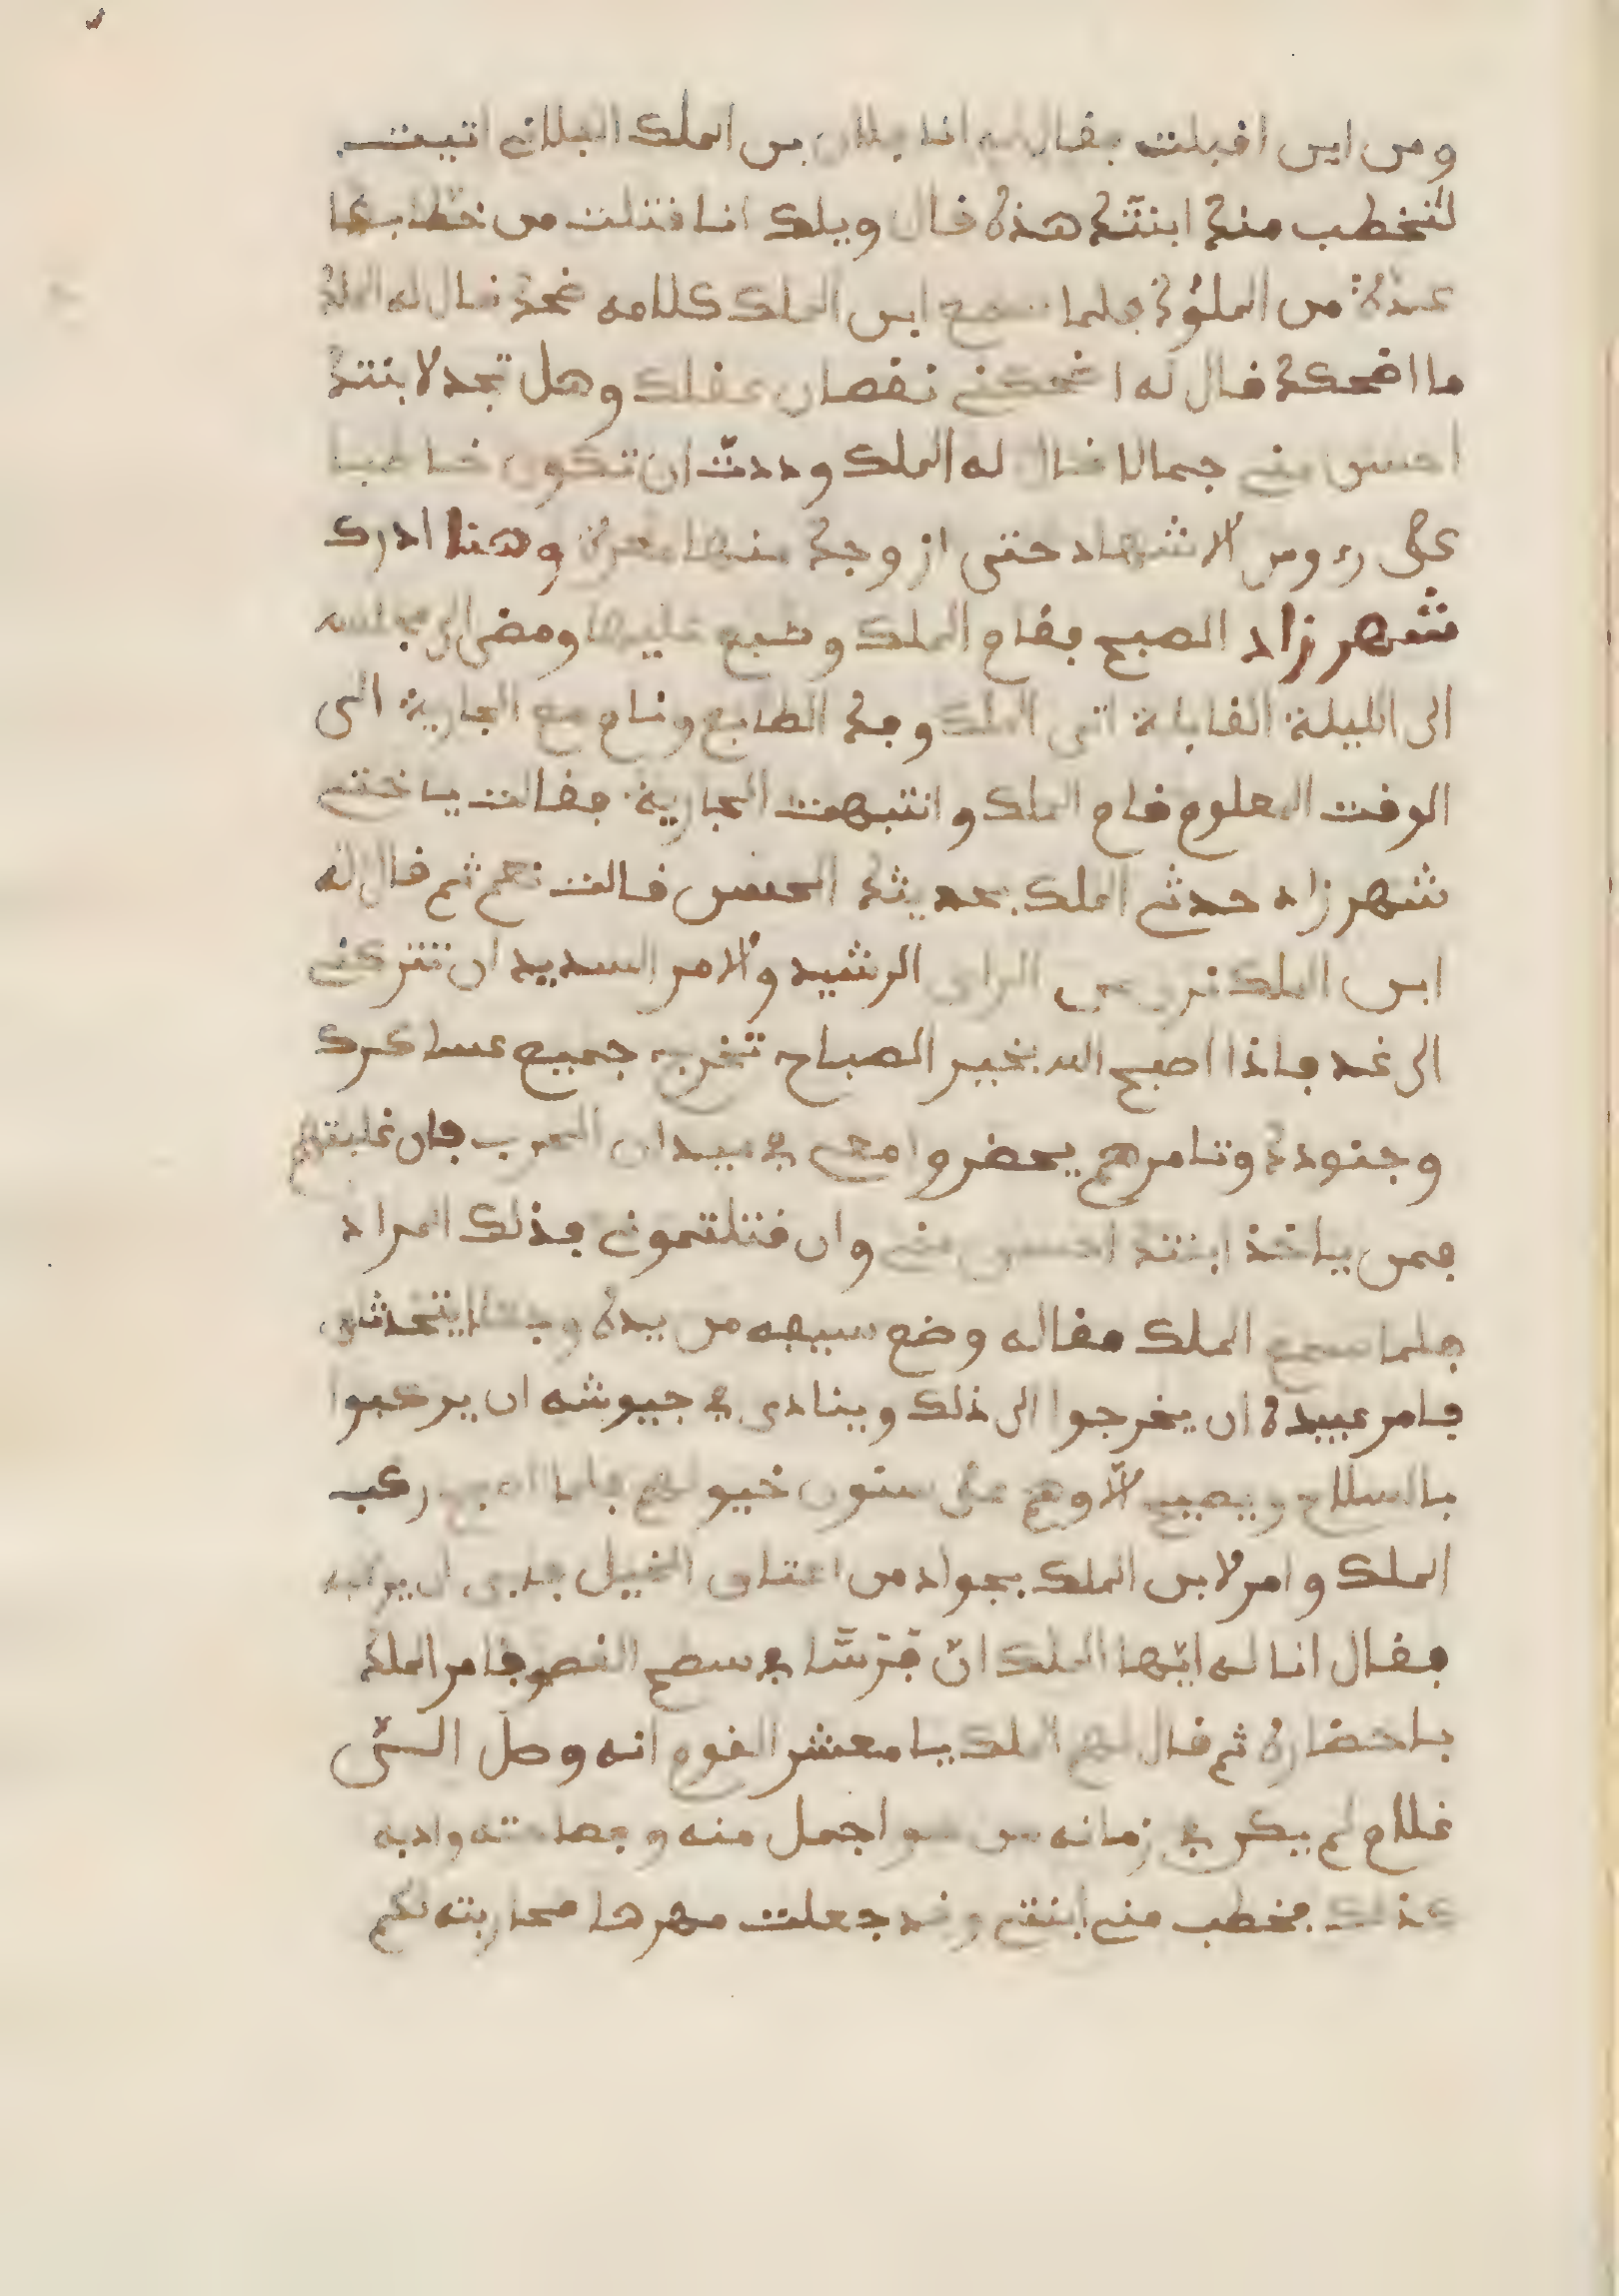 ومن اين اقبلت فقال له انا فلان بن الملك الفلاني اتيت
لنخطب منك ابنتك هذه قال ويلك انا قتلت من خطابها
عدة من الملوك فلما سمع ابن الملك كلامه ضحك فقال له الملك
ما اضحكك قال له اضحكني نقصان عقلك وهل تجد لابنتك
احسن مني جمالا فقال له الملك وددت ان تكون خاطبا
على رءوس الاشهاد حتى ازوجك منها وهنا ادرك
شهرزاد الصبح فقام الملك وطبع عليها ومضى الى مجلسه
الى الليلة القابلة اتى الملك وفك الطابع ونام مع الجارية الى
الوقت المعلوم قام الملك وانتبهت الجارية فقالت ياختي
شهرزاد حدثي الملك بحديثك الحسن قالت نعم ثم قال له
ابن الملك نرى من الراي الرشيد والامر السديد ان تتركني
الى غد فاذا اصبح الله بخير الصباح تخرج جميع عساكرك
وجنودك وتامرهم يحضروا معي في ميدان الحرب فان غلبتهم
فمن ياخذ ابنتك احسن مني وان قتلتموني فذلك المراد
فلما سمع الملك مقاله وضع سيفه من يده وجلسا يتحدثان
فامر عبيده ان يخرجوا الى ذلك وينادى في جيوشه ان يركبوا
بالسلاح ويصبح الاوهم على متون خيولهم فلما اصبح ركب
الملك وامر لابن الملك بجواد من اعتاق الخيل فابى ان يركبه
فقال انا له ايها الملك ان فرسا في سطح القصر فامر الملك
باحضاره ثم قال لهم الملك يا معشر القوم انه وصل الي
غلام لم يكن في زمانه من هو اجمل منه وفصاحته وادبه
كذلك فخطب مني ابنتي وقد جعلت مهرها محاربته لكم